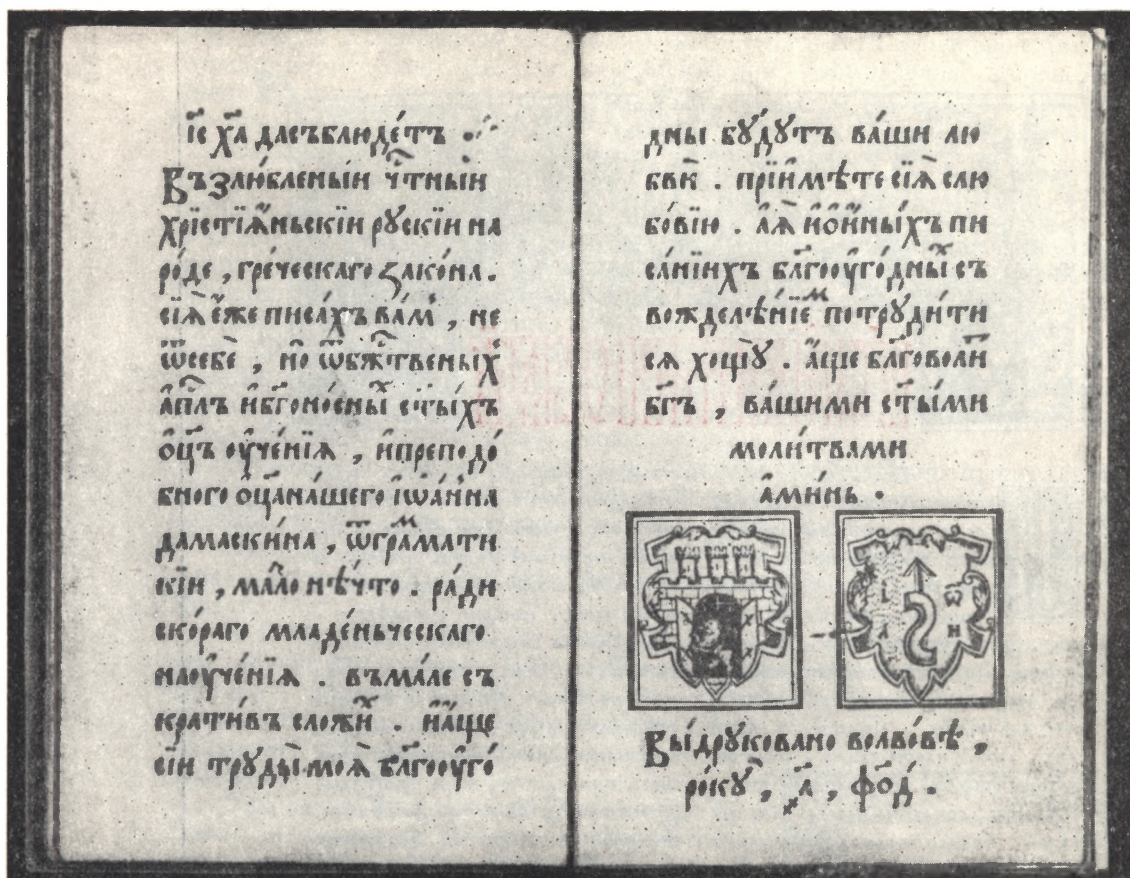 і҃с х҃а дасъблюде́тъ .
Възлю́бленыи чⷭ҇тныи
хрїстїа́ньскїи рускїи на
ро́де , гре́ческаго зако́на .
сїѧ̀ є́же писа́хъ ва́м , не
ѿсебѐ , но̀ ѿбжⷭ҇твеныⷯ
а҆пⷭ҇лъ и҆бг҃оно́сныⷯ ст҃ы́хъ
о҆ц҃ъ оу҆че́нїѧ , и҆преподо́
бного о҆ц҃а на́шего і҆ѡа́нна
дамаски́на , ѿгра́маⷨти
кїи , ма́ло нѣ́что . ра́ди
ско́раго младе́ньческаго
наоу҆че́нїѧ . въма́ле съ
крати́въ сложи́ⷯ . и҆а́ще
сїи труды̀ моѧ̀ бл҃гооуго́
дны бу́дутъ ва́ши лю
бвѝ . прїи҆мѣ́те сїѧ̀ слю
бо́вїю . а҆́ѧ и҆о҆и҆ны́хъ пи
са́нїихъ бл҃гооу҆го́дныⷯ съ
вожделѣ́нїеⷨ потруди́ти
сѧ хощꙋ̀ . а҆́ще бл҃говоли́тⷮ
бг҃ъ , ва́шими ст҃ы́ми
моли́твами
а҆ми́нь .
І Ѡ
А Н
Вы́друковано волво́вѣ ,
ро́кꙋ , ҂а҃ , фо҃д .